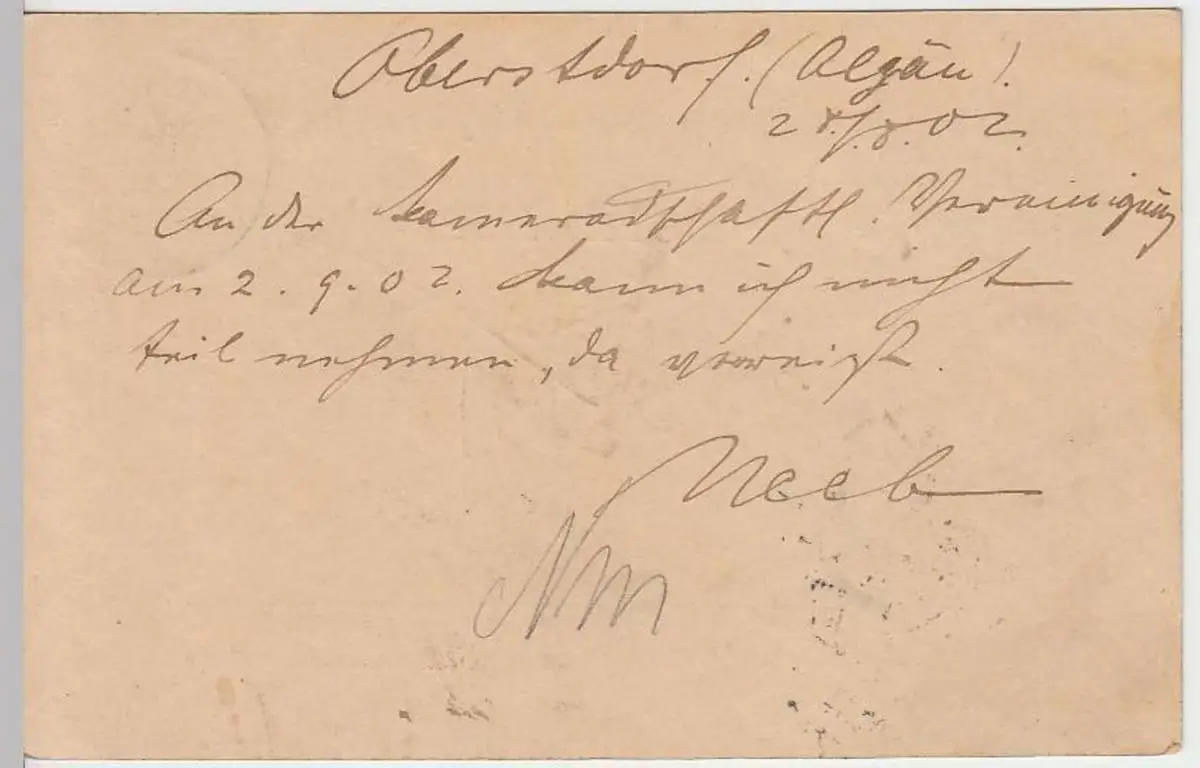 Oberstdorf. (Algäu).
28./8.02.
An der kameradschaftl. Vereinigung
am 2. 9. 02. kann ich nicht
teil nehmen, da verreist.
Neeb